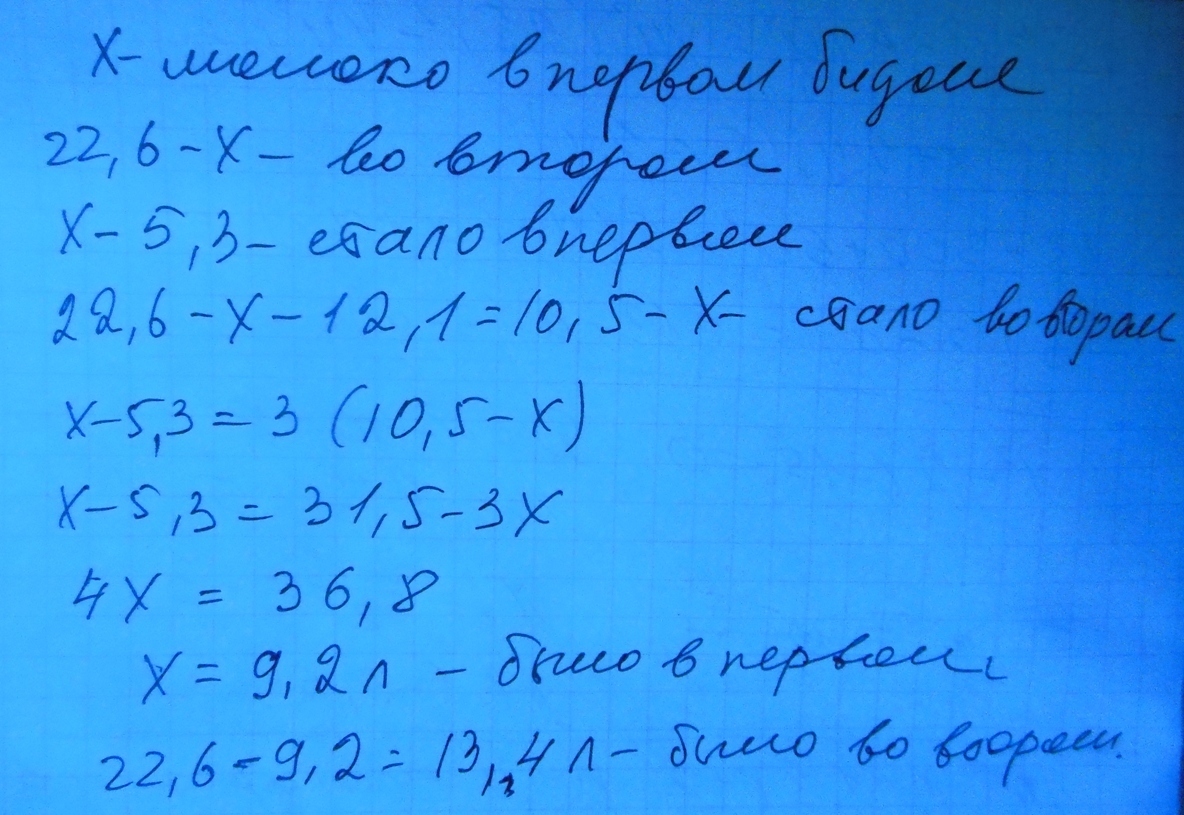 X - молоко в первом бидоне
22,6 - X - во втором
X - 5,3 - стало в первом
22,6 - X - 12,1 = 10,5 - X - стало во втором
X - 5,3 = 3 (10,5 - X)
X - 5,3 = 31,5 - 3X
4X = 36,8
X = 9,2 л - было в первом
22,6 - 9,2 = 13,4 л - было во втором.